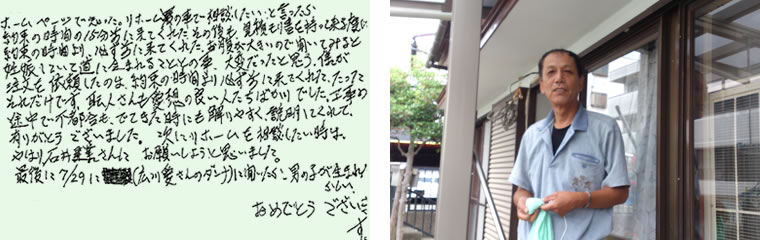 ホームページで知った。リホーム等の事で相談したい、と言ったら
約束の時間の15分前に来てくれた。その後も見積り書を持って来る度に
約束の時間より、必ず前に来てくれた。お腹が大きいので聞いてみると
妊娠していて近に生まれるとの事、大変だったと思う。僕が
注文を依頼したのは、約束の時間より必ず前に来てくれて、たった
それだけです。職人さんも愛想の良い人たちばかりでした。工事の
途中で不都合も、でてきた時にも解りやすく、説明してくれて、
ありがとうございました。次にリホームを相談したい時は、
やはり石井建業さんにお願いしようと思いました。
最後に7/29に(広川愛さんのダンナ)に聞いたら、男の子が生まれた
らしい、
おめでとうございます。